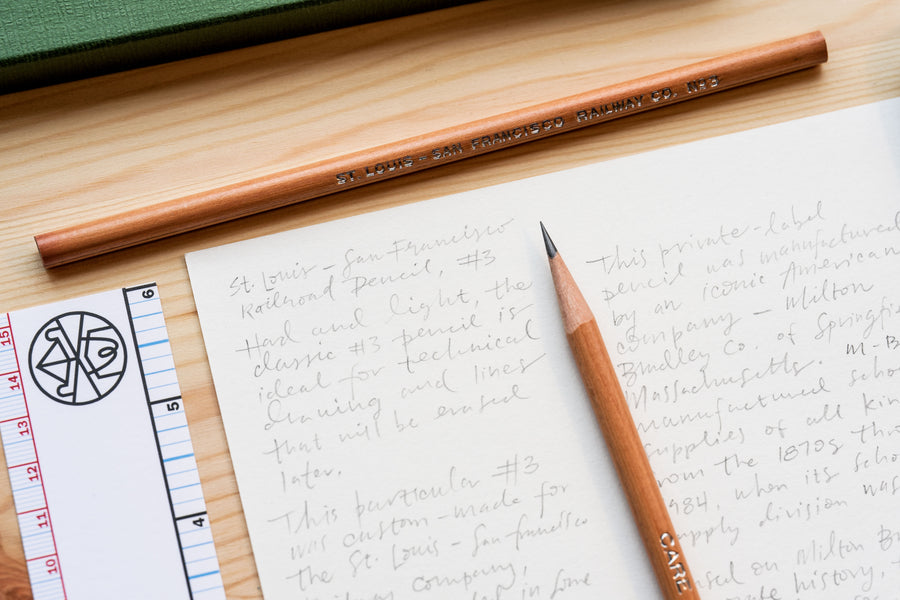 ST. LOUIS - SAN FRANCISCO RAILWAY CO. Nº3
St. Louis - San Francisco
Railroad Pencil, #3
Had and light, the
classic #3 pencil is
ideal for technical
drawing and lines
that will be erased
later.
This particular #3
was custom-made for
the St. Louis - San francisco
company,
in
This private-label
pencil was manufactured
by an iconic American
company - Milton
Bradley Co. of Springfie
Massachusetts. M-B
manufactured scho
supplies of all kin
from the 1870s thr
984, when its scho
upply division was
on Milton B
history,
CARE
15
14
13
12
11
10
6
5
4